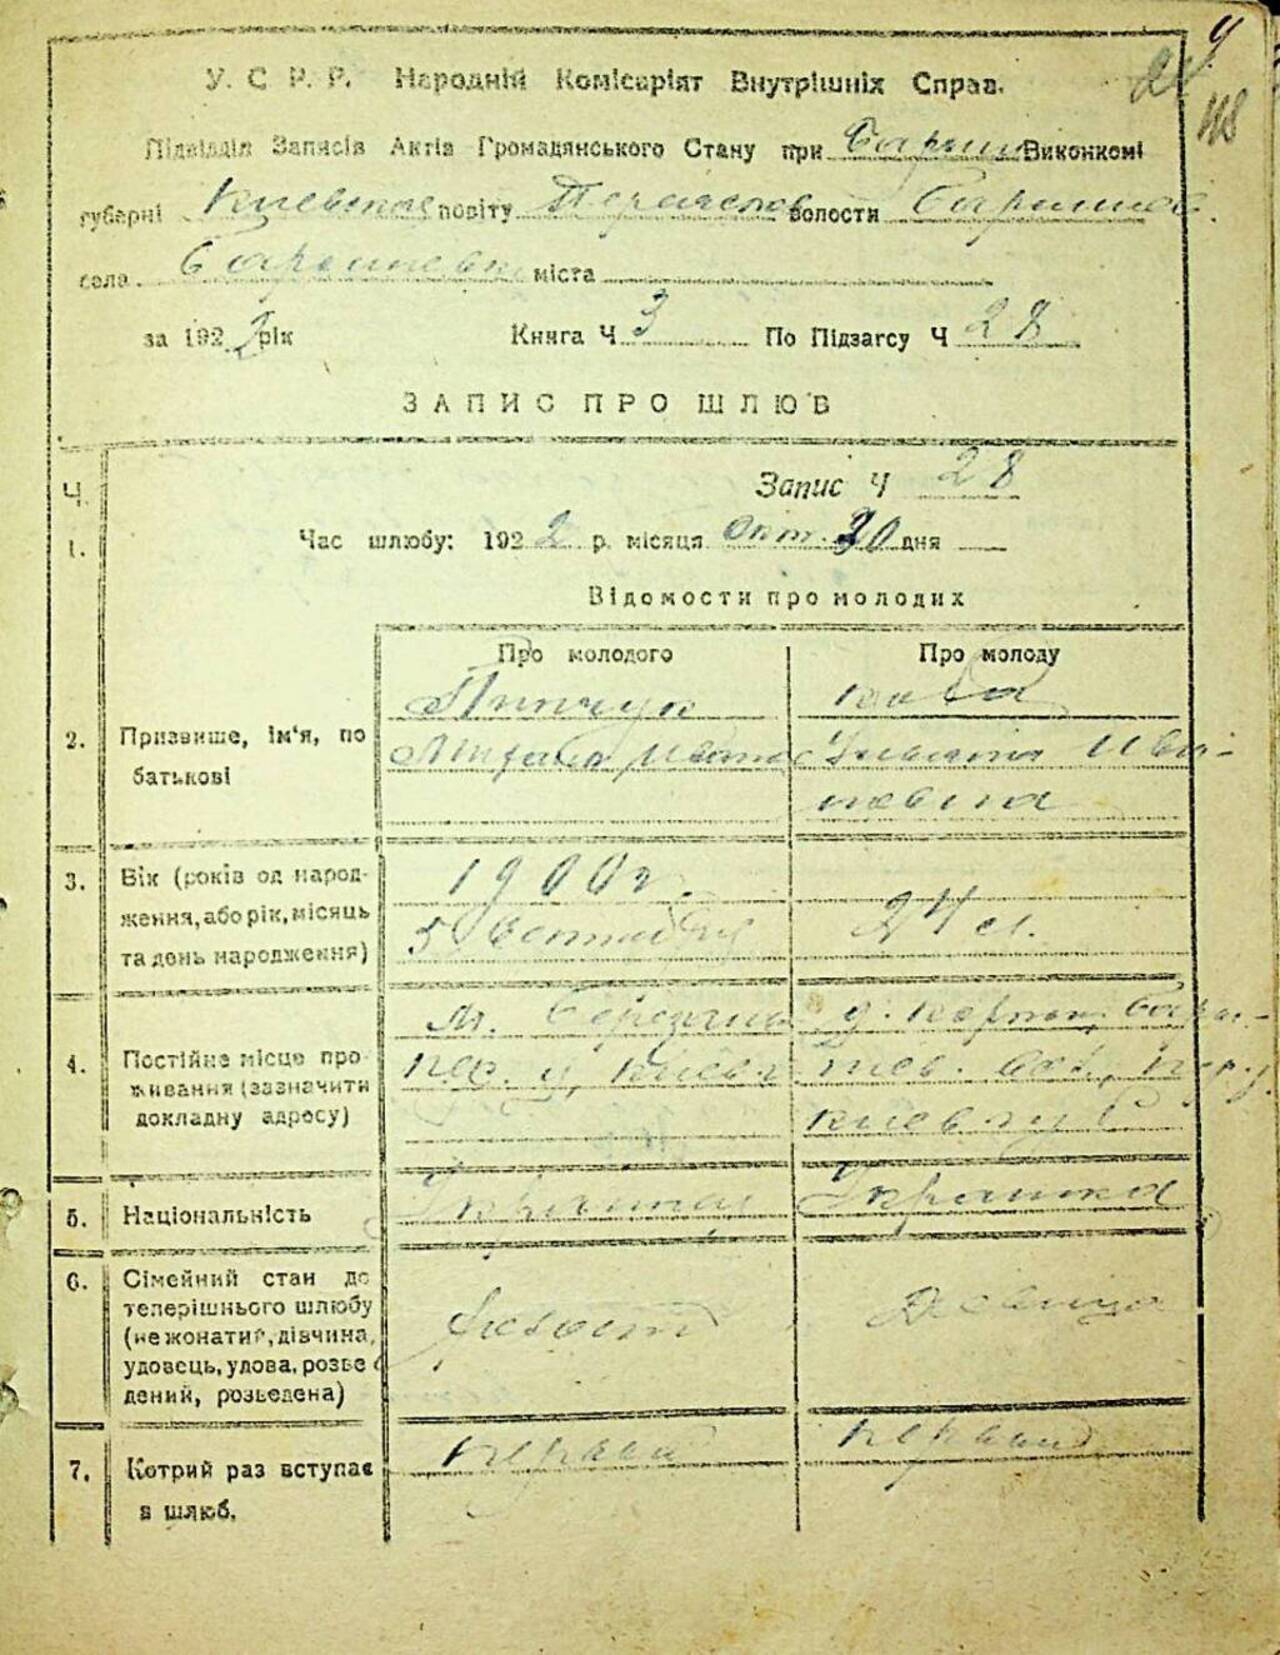 У. С. Р. Р. Народній Комісаріят Внутрішніх Справ.
118
Підвідділ Записів Актів Громадянського Стану при Бариш Виконкомі
губерні Киевской повіту Переяслов волости Баришев.
села Баришевки міста
за 1922 рік Книга Ч 3 По Підзагсу Ч 28
ЗАПИС ПРО ШЛЮБ
Ч. Запис Ч 28
1. Час шлюбу: 1922 р. місяця Окт. 30 дня
Відомости про молодих
Про молодого Про молоду
2. Призвище, ім'я, по батькові
Михаил Ивано Ива-
новна
3. Вік (років од народ-
ження, або рік, місяць
та день народження)
1900 г.
5 Сентября 21 л.
4. Постійне місце про-
живання (зазначити
докладну адресу)
м. Березань
пер. у. Киев. г. шев. вол., пер. у.
Киев. губ
5. Національність Украинец Украинка
6. Сімейний стан до
теперішнього шлюбу
(не жонатий, дівчина,
удовець, удова, розве
дений, розведена)
Холост Девица
7. Котрий раз вступає
в шлюб.
первый первый